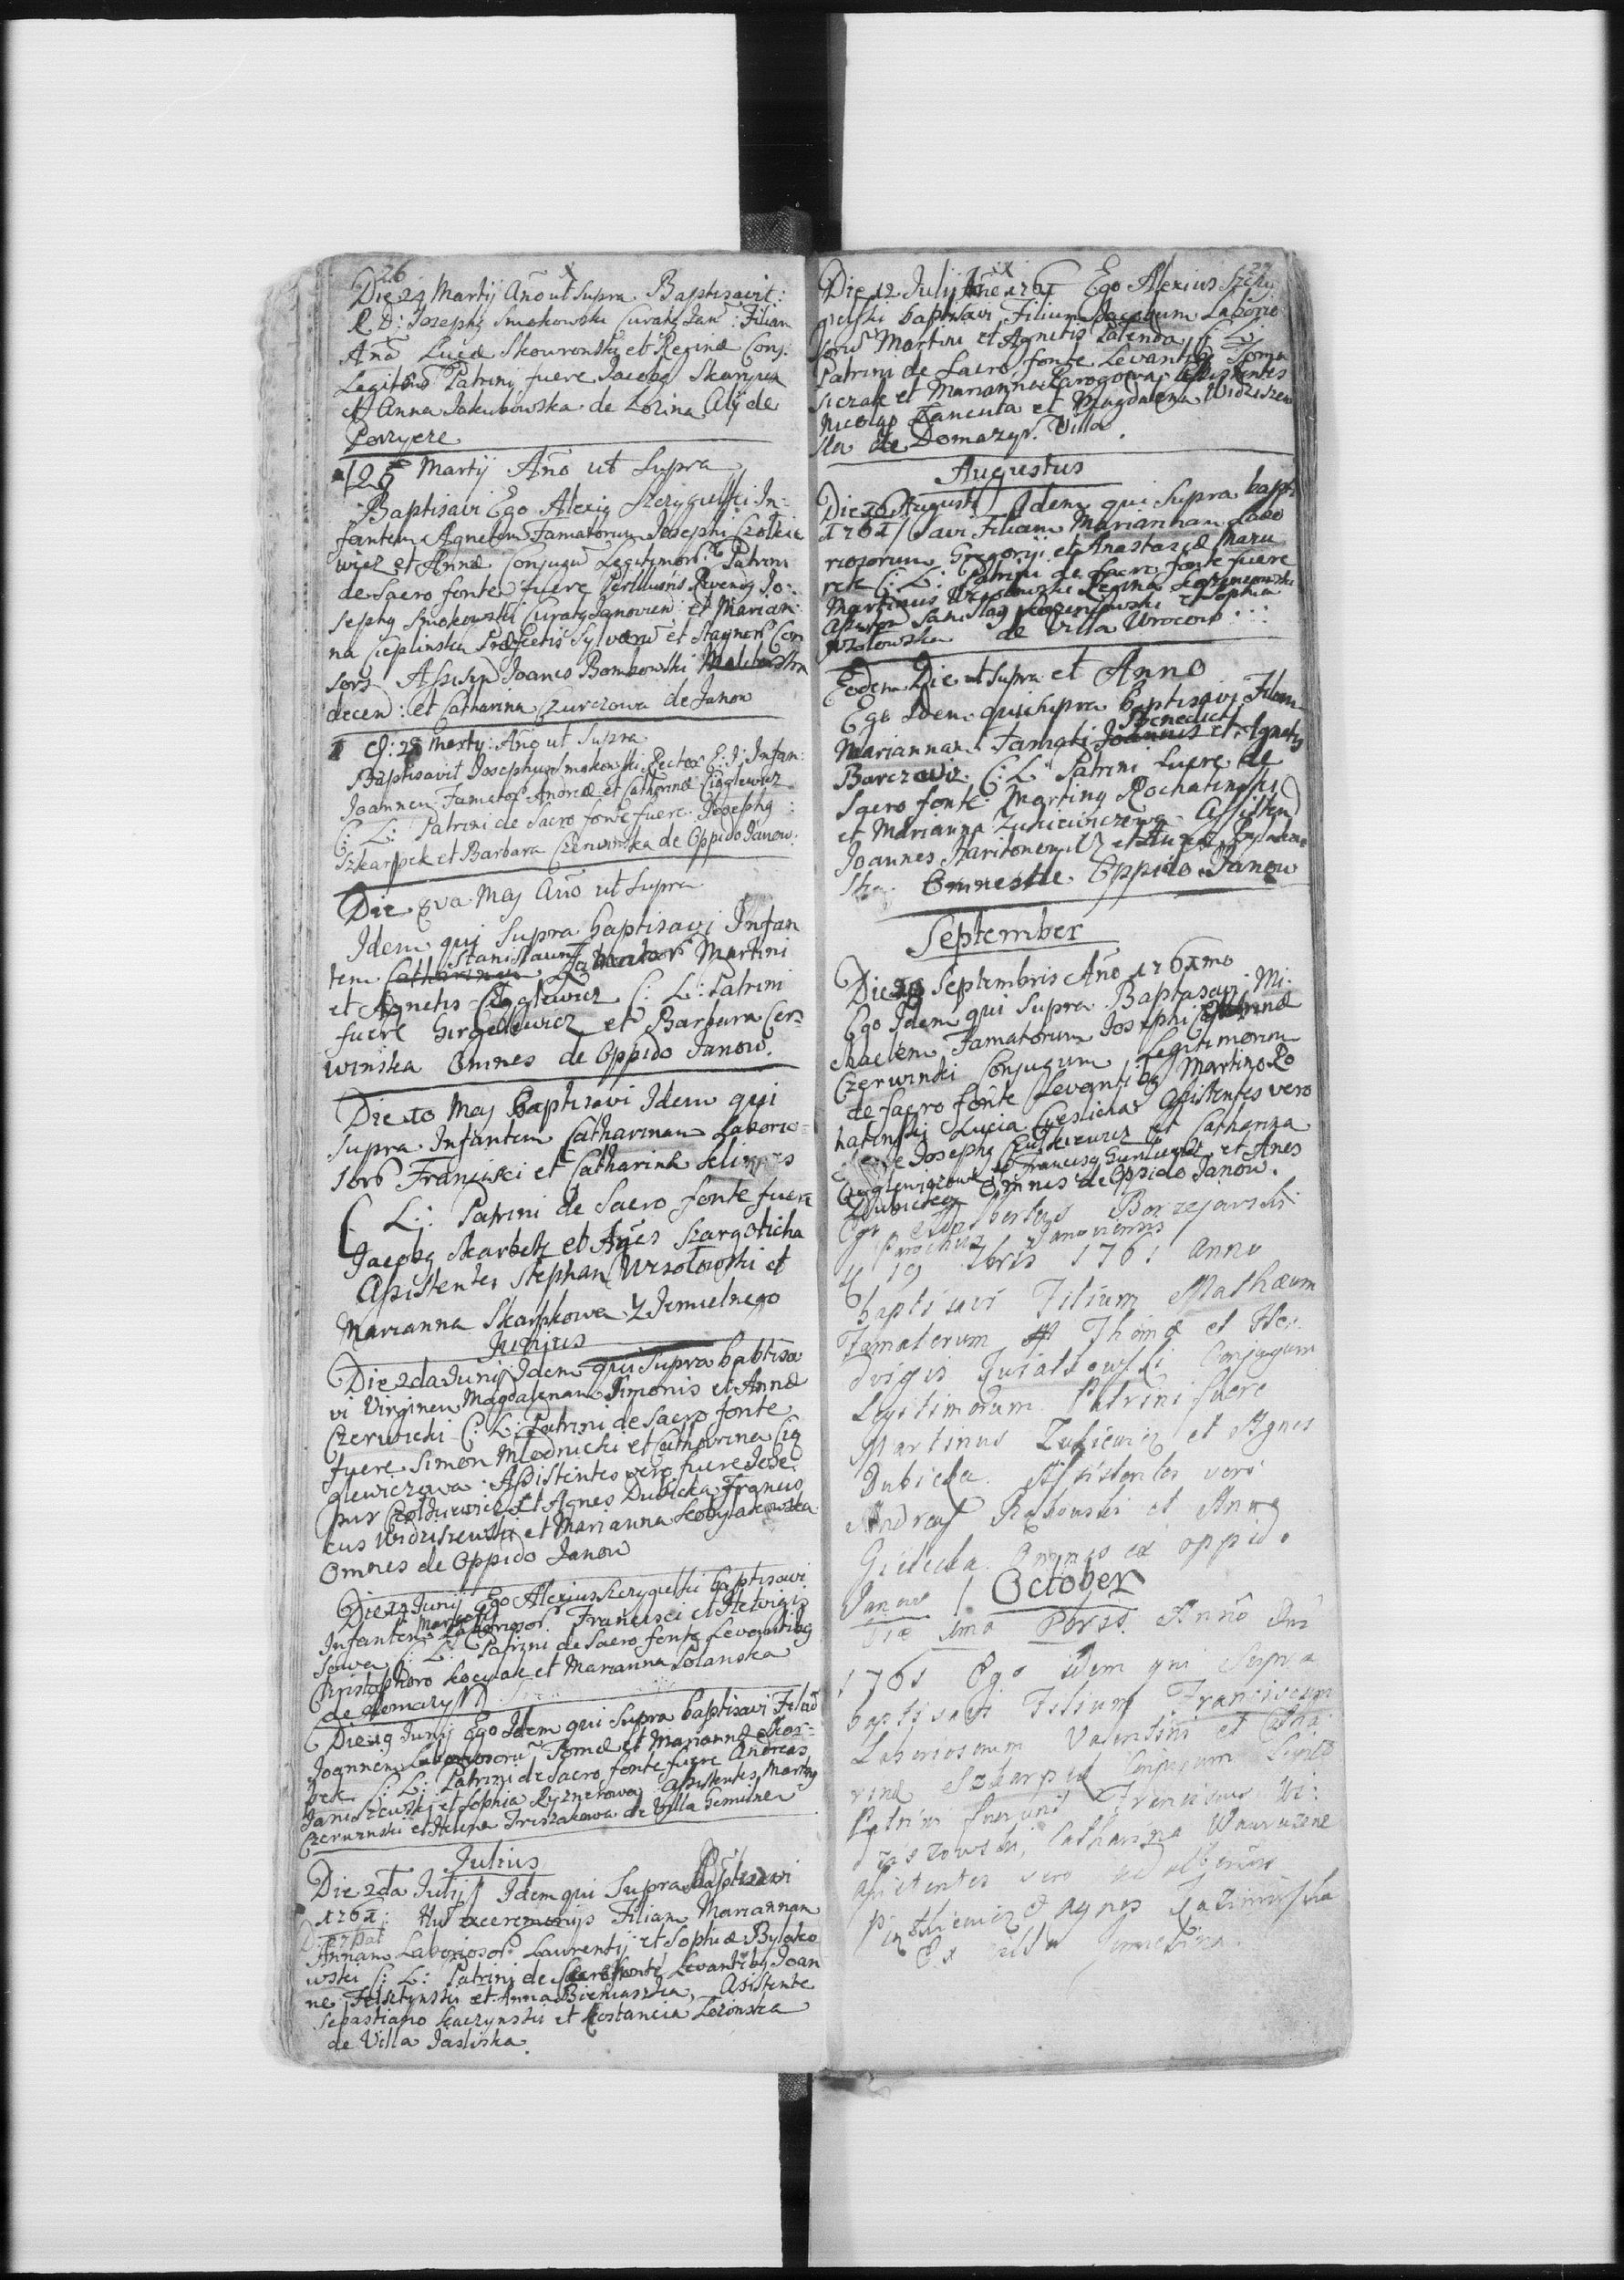 26
Die 24 Martij Año ut Supra Baptisavit
R. D: Josephq Smokowski Curatq Jan: Filiam
Añã Lucæ Skowronski et Reginæ Conj.
Legitõrũ Patrinj fuere Jacobq
et Anna Jakubowska de Lozina Alij de
Porzycze
26 Martij Año ut Supra
Baptisavi Ego Alexiq Szczygielski In-
fantem Agnetem Famatorum Josephi Czołkie
wicz et Annæ Conjugũ Legitimor Patrini
de Sacro fonte fuere Perillustris Reverendq Jo:
sephq Smokowski Curatq Janovien: et Marian:
na Cieplinska Præfectis Sylvarũ et Stagnorũ Con
sors Assisten Joanes Bombowski
decen: et Catharina Czurczowa de Janow
28 Martij: Año ut Supra
Baptisavit Josephus Smokowski Rector E: J: Infan:
Joannem Famator Andreæ et Catharinæ Ciąglewicz
C: L: Patrini de Sacro fonte fuere Josephq
Szkarpek et Barbara Czerwinska de Oppido Janow.
Die 8va Maj Año ut Supra
Idem qui Supra baptisavj Infan
Stanislaum
tem Catharinam Famator Martini
et Agnetis Ciąglewicz C: L: Patrini
fuere et Barbara Cer
winska Omnes de Oppido Janow.
Die 10 Maj Baptisavi Idem qui
supra Infantem Catharinam Laborio=
sorũ Francisci et Catharinæ
C: L: Patrini de Sacro fonte fuere
Jacobq Skarbek et Agnes Szargoticha
Asistentes Stephan Wrzolowski et
Marianna Skarpkowa Z Jemielnego
Junjus
Die 2da Junij Idem qui Supra babtisa
vi Virginem Magdalenam Simonis et Annæ
Czerwicki C: L: Patrini de Sacro fonte
fuere Simon Miednicki et Catharina Cią
glewiczowa: Assistentes vero fuere Jose
phus Czołkiewicz et Agnes Dubicka Francis
cus Widziszewski et Marianna Kobylakowska
Omnes de Oppido Janow
Die 24 Junij Ego Alexius Szczygielski baptisavi
Infantem Laboriosor Francisci et Hetvigis
Sowa C: L: Patrini de Sacro fonte Levantibq
Christophoro Kocwak et Marianna Solanska
de Domazyr
Die 29 Junij Ego Idem qui Supra baptisavi Filiũ
Joannem Laboriosorũ Tomæ et Mariannæ Skar=
pek C: L: Patrini de Sacro fonte fuere Andreas
Janiszewski et Sophia Ryznerowa Assistentes Martinq
Czerwinski et Helena Friszakowa de Villa Jemielne
Julius
Die 2da Julij Idem qui Supra baptisavi
1761: Filiam Mariannam
Annam Laboriosor Laurentij et Sophiæ Bylako
wski C: L: Patrini de Sacro fonte Levantibq Joan
ne Felsztynski et Anna Bieniaszka, Asistente
Sebastiano Kaczynski et Kostancia Lozinska
de Villa Jasliska.
27
Die 12 Julij Año 1761 Ego Alexius Szczy
gielski baptisavi Filium Jacobum Laborio
sorũ Martini et Agnetis Patenda C: L:
Patrini de Sacro fonte Levantibq Toma
siczak et Marianna Assistentes
Nicolaq Panenta et Magdalena Widzisze
ska de Domazyr Villa.
Augustus
Die 26 Augusti Idem qui Supra bapti
1761 savi Filiam Mariannam Labo
riosorum Gregorij et Anastasiæ Mazu
rek C: L: Patrini de Sacro fonte fuere
Martinus Wrzolowski Regina
Sophia
Wrzolowska de Villa Wrocow
Eodem Die ut Supra et Anno
Ego Idem qui supra baptisavi Filiam
Benedicti
Mariannam Famati Joannis et Agnetis
Barczowicz C: L: Patrini fuere de
Sacro fonte Martinq Rochatinski
et Marianna Zukiewiczowa Assisten
Joannes Haritonowicz et
ska Omnes de Oppido Janow
September
Die 28 Septembris Año 1761mo
Ego Idem qui Supra Baptisavi Mi:
chaelem Famatorum Josephi
Czerwinski Conjugum Legitimorum
de Sacro fonte Levantibq Martino Ro
hatinski Lucia Asistentes vero
fuere Josephq Czułkiewicz et Catharina
Ciąglewiczowa et Agnes
Dubicka Omnes de Oppido Janow.
Ego Adalbertus Borzejowski
Parochus Janoviensis
19 7bris 1761 anno
baptisavi Filium Mathæum
Famatorum Thomæ et Hed
vigis Kwiatkowski Conjugum
Legitimorum Patrini fuere
Martinus Zukiewicz et Agnes
Dubicka. Assistentes vero
Andreas Rakowski et Anna
Omnes ex oppido
Janow
October
Die 1ma 8bris Anno Dni
1761 Ego idem qui Supra
baptisavi Filium Franciscum
Laboriosorum Valentini et Catha
rinæ Szkarpek Conjugum Legit
Patrini fuerunt Franciscus Wi:
dziszowski, Catharina
Asistentes vero Adalbertus
et Agnes Kazimirska
Ex Villa